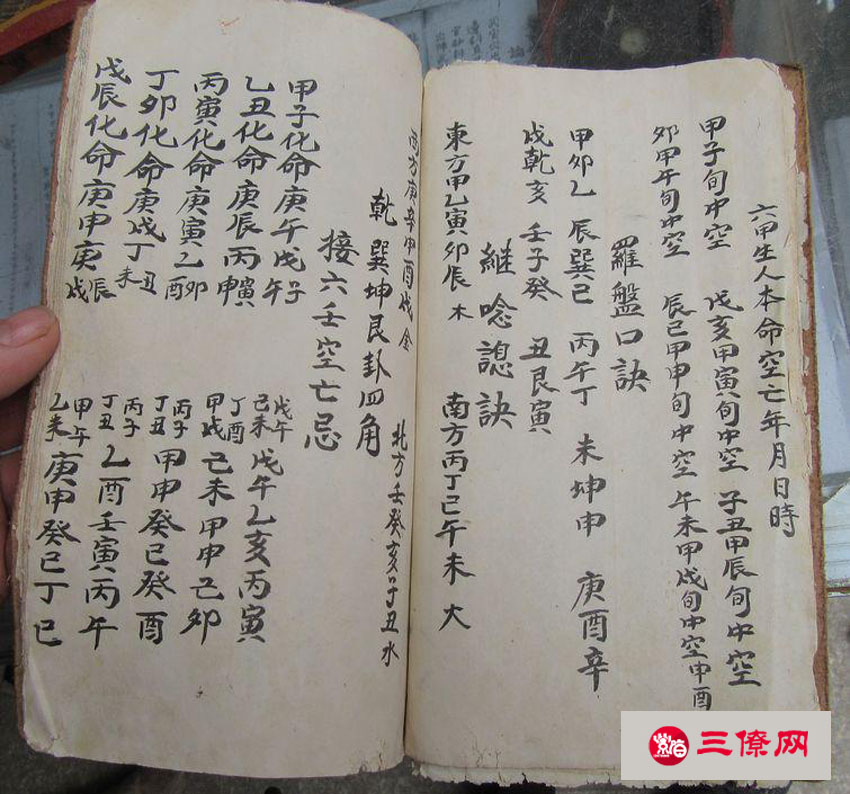 六甲生人本命空亡年月日時
甲子旬中空 戊亥甲寅旬中空 子丑甲辰旬中空
卯甲午旬中空 辰巳甲申旬中空 午未甲戌旬中空申酉
羅盤口訣
甲卯乙 辰巽巳 丙午丁 未坤申 庚酉辛
戌乾亥 壬子癸 丑艮寅
継唸諰訣
東方甲乙寅卯辰木 南方丙丁巳午未大
西方庚辛申酉戌金 北方壬癸亥子丑水
乾巽坤艮卦四角
接六壬空亡忌
甲子化命庚午戊子午 戊午己未戊午乙亥丙寅
乙丑化命庚辰丙寅申 丁酉甲戌己未甲申己卯
丙寅化命庚寅乙卯酉 丙子丁丑甲申癸巳癸酉
丁卯化命庚戌丁丑未 丙子丁丑乙酉壬寅丙午
戊辰化命庚申庚辰戌 甲午乙未庚申癸巳丁巳
三僚网